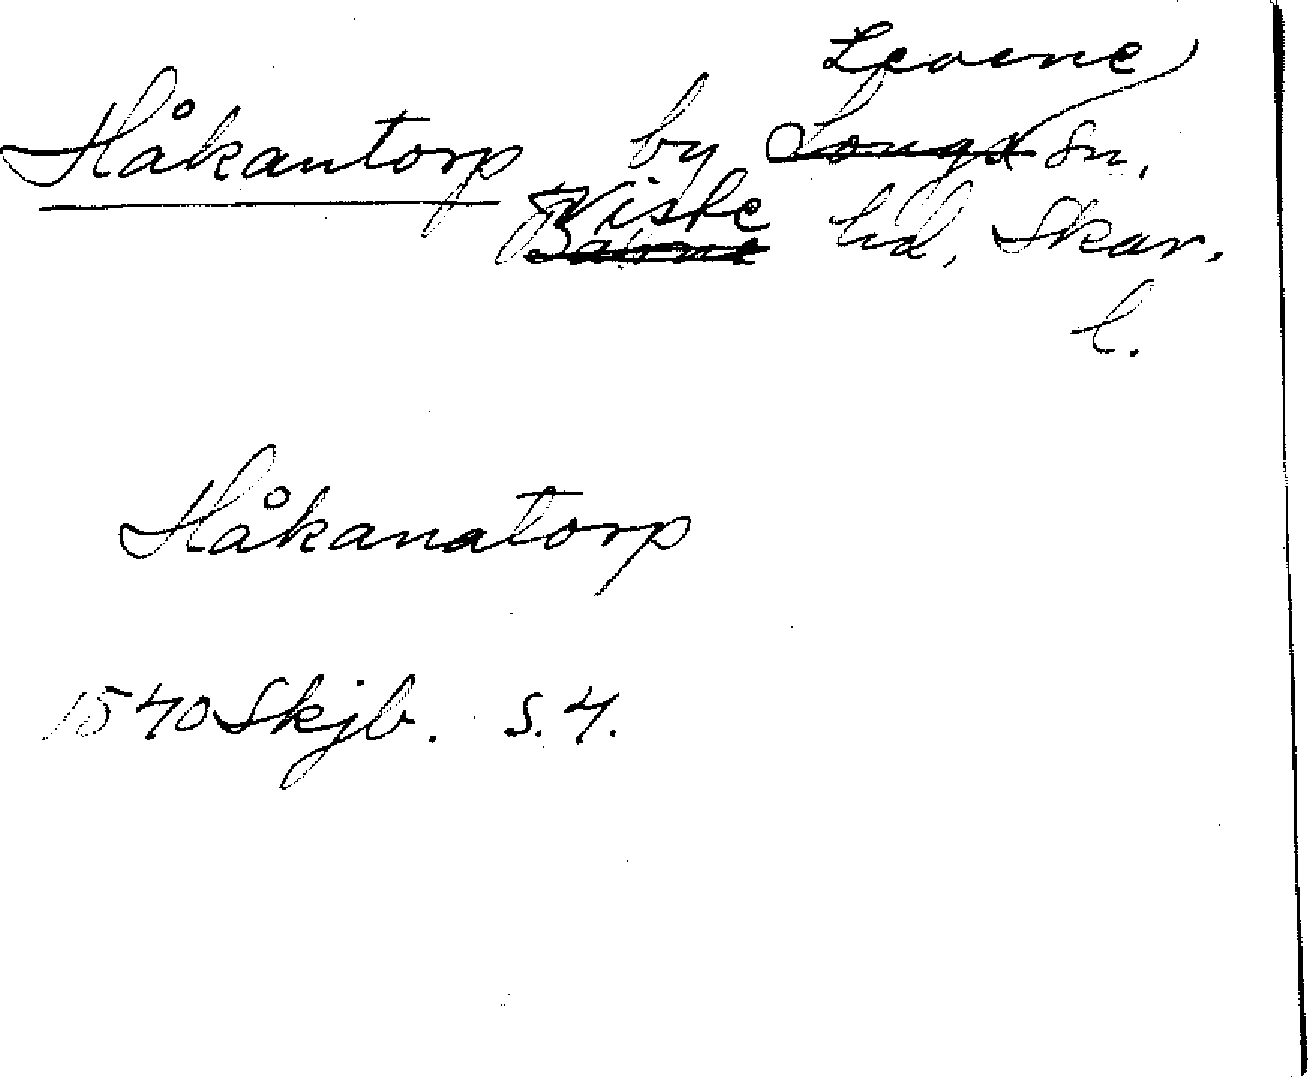 Levene
Håkantorp by Longs sn,
Viste hd, Skar.
Barne
l.
Håkanatorp
1540 Skjb. s. 4.